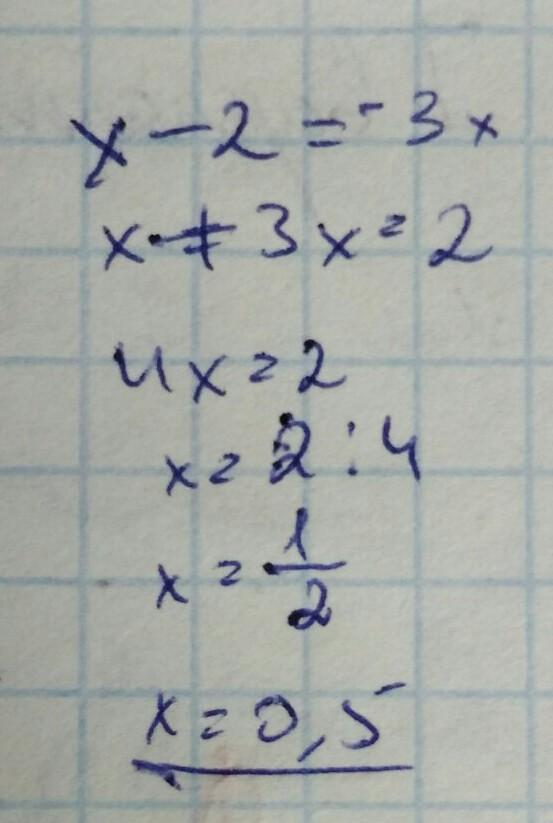 x - 2 = -3x
x + 3x = 2
4x = 2
x = 2 : 4
x = 1/2
x = 0,5